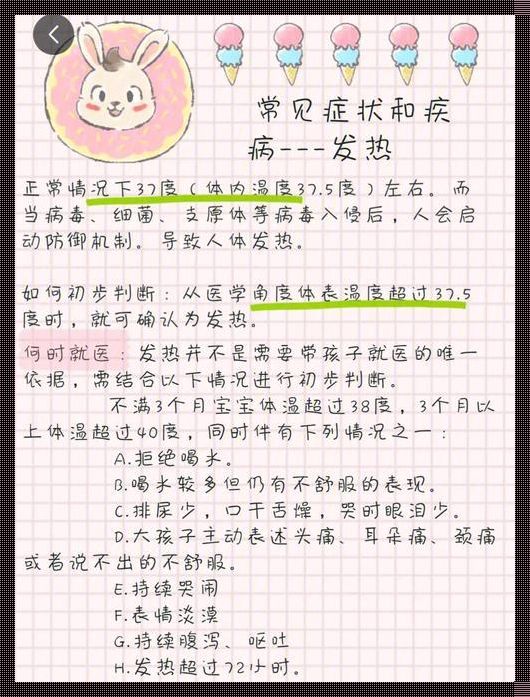 常见症状和疾
病---发热
正常情况下37度（体内温度37.5度）左右。而
当病毒、细菌、支原体等病毒入侵后，人会启
动防御机制。导致人体发热。
如何初步判断：从医学角度体表温度超过37.5
度时，就可确认为发热。
何时就医：发热并不是需要带孩子就医的唯一
依据，需结合以下情况进行初步判断。
不满3个月宝宝体温超过38度，3个月以
上体温超过40度，同时件有下列情况之一：
A.拒绝喝水。
B.喝水较多但仍有不舒服的表现。
C.排尿少，口干舌燥，哭时眼泪少。
D.大孩子主动表述头痛、耳朵痛、颈痛
或者说不出的不舒服。
E.持续哭闹
F.表情淡漠
G.持续腹泻、呕吐
H.发热超过72小时。